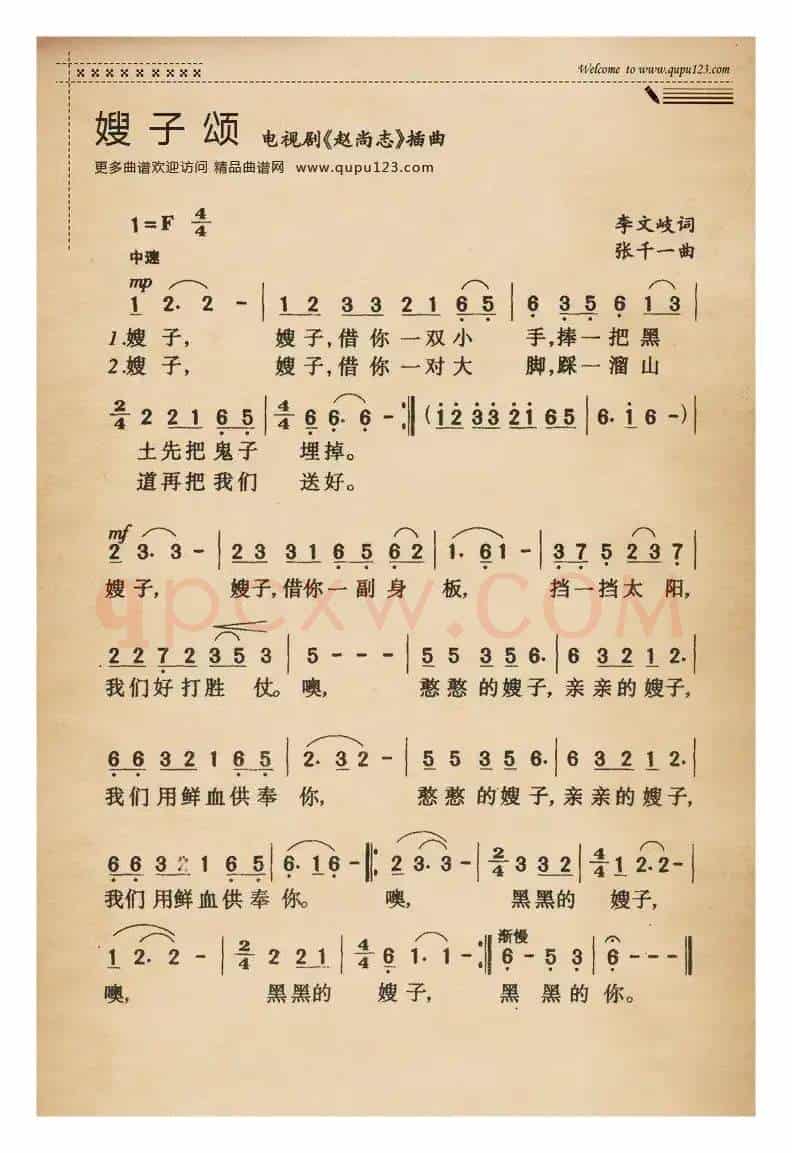 Welcome to www.qupu123.com
嫂子颂 电视剧《赵尚志》插曲
更多曲谱欢迎访问 精品曲谱网 www.qupu123.com
1=F 4/4 李文岐词
中速 张千一曲
mp
1 2. 2 - | 1 2 3 3 2 1 6 5 | 6 3 5 6 1 3 |
1.嫂 子, 嫂 子,借 你 一 双 小 手,捧 一 把 黑
2.嫂 子, 嫂 子,借 你 一 对 大 脚,踩 一 溜 山
2/4 2 2 1 6 5 | 4/4 6 6. 6 - :‖ (1 2 3 3 2 1 6 5 | 6. 1 6 -) |
土 先 把 鬼 子 埋 掉。
道 再 把 我 们 送 好。
mf
2 3. 3 - | 2 3 3 1 6 5 6 2 | 1. 6 1 - | 3 7 5 2 3 7 |
嫂 子, 嫂 子,借 你 一 副 身 板, 挡 一 挡 太 阳,
2 2 7 2 3 5 3 | 5 - - - | 5 5 3 5 6. | 6 3 2 1 2. |
我 们 好 打 胜 仗。噢, 憨 憨 的 嫂 子,亲 亲 的 嫂 子,
6 6 3 2 1 6 5 | 2. 3 2 - | 5 5 3 5 6. | 6 3 2 1 2. |
我 们 用 鲜 血 供 奉 你, 憨 憨 的 嫂 子,亲 亲 的 嫂 子,
6 6 3 2 1 6 5 | 6. 1 6 - ‖: 2 3. 3 - | 2/4 3 3 2 | 4/4 1 2. 2 - |
我 们 用 鲜 血 供 奉 你。 噢, 黑 黑 的 嫂 子,
渐慢
1 2. 2 - | 2/4 2 2 1 | 4/4 6 1. 1 - :‖ 6 - 5 3 | 6 - - - ‖
噢, 黑 黑 的 嫂 子, 黑 黑 的 你。
qpcxw.com